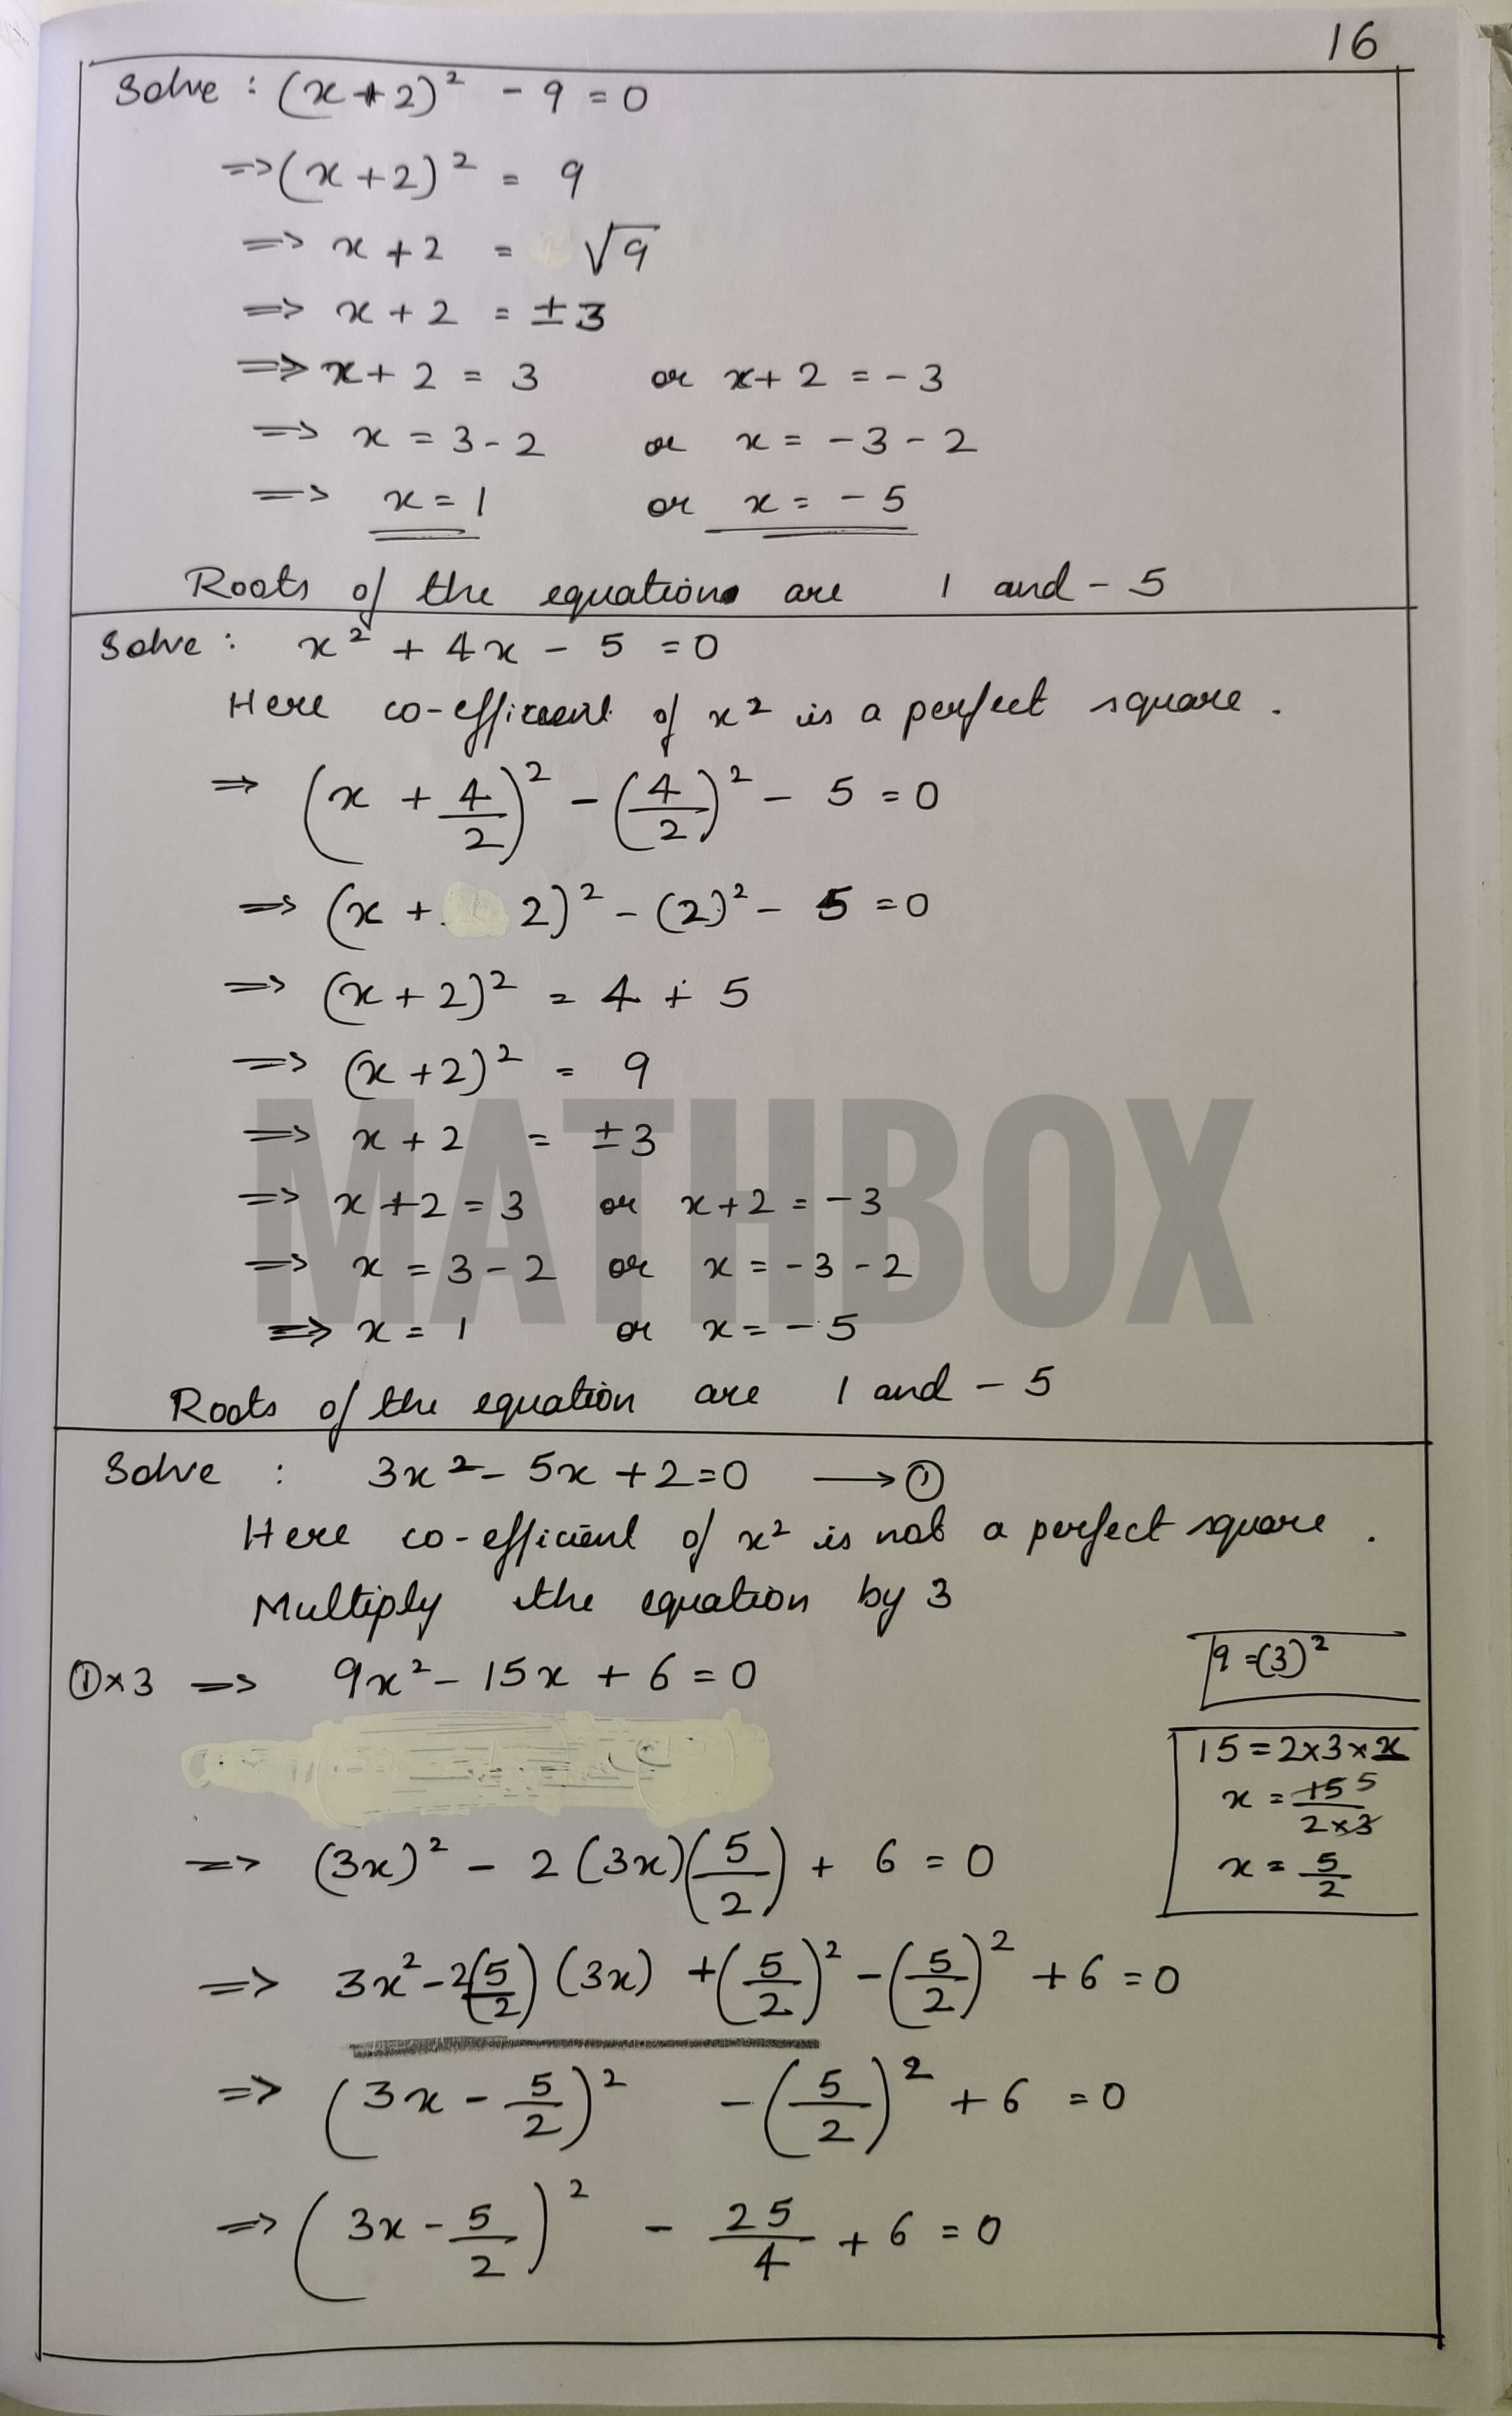 16
Solve : (x+2)² - 9 = 0
=> (x+2)² = 9
=> x+2 = √9
=> x+2 = ±3
=> x+2 = 3 or x+2 = -3
=> x = 3-2 or x = -3-2
=> x = 1 or x = -5
Roots of the equation are 1 and -5
Solve : x² + 4x - 5 = 0
Here co-efficient of x² is a perfect square.
=> (x + 4/2)² - (4/2)² - 5 = 0
=> (x + 2)² - (2)² - 5 = 0
=> (x+2)² = 4 + 5
=> (x+2)² = 9
=> x+2 = ±3
=> x+2 = 3 or x+2 = -3
=> x = 3-2 or x = -3-2
=> x = 1 or x = -5
MATHBOX
Roots of the equation are 1 and -5
Solve : 3x² - 5x + 2 = 0 → ①
Here co-efficient of x² is not a perfect square.
Multiply the equation by 3
①×3 => 9x² - 15x + 6 = 0
9 = (3)²
15 = 2×3×x
x = 15 5/2×3
x = 5/2
=> (3x)² - 2(3x)(5/2) + 6 = 0
=> 3x² - 2(5/2)(3x) + (5/2)² - (5/2)² + 6 = 0
=> (3x - 5/2)² - (5/2)² + 6 = 0
=> (3x - 5/2)² - 25/4 + 6 = 0